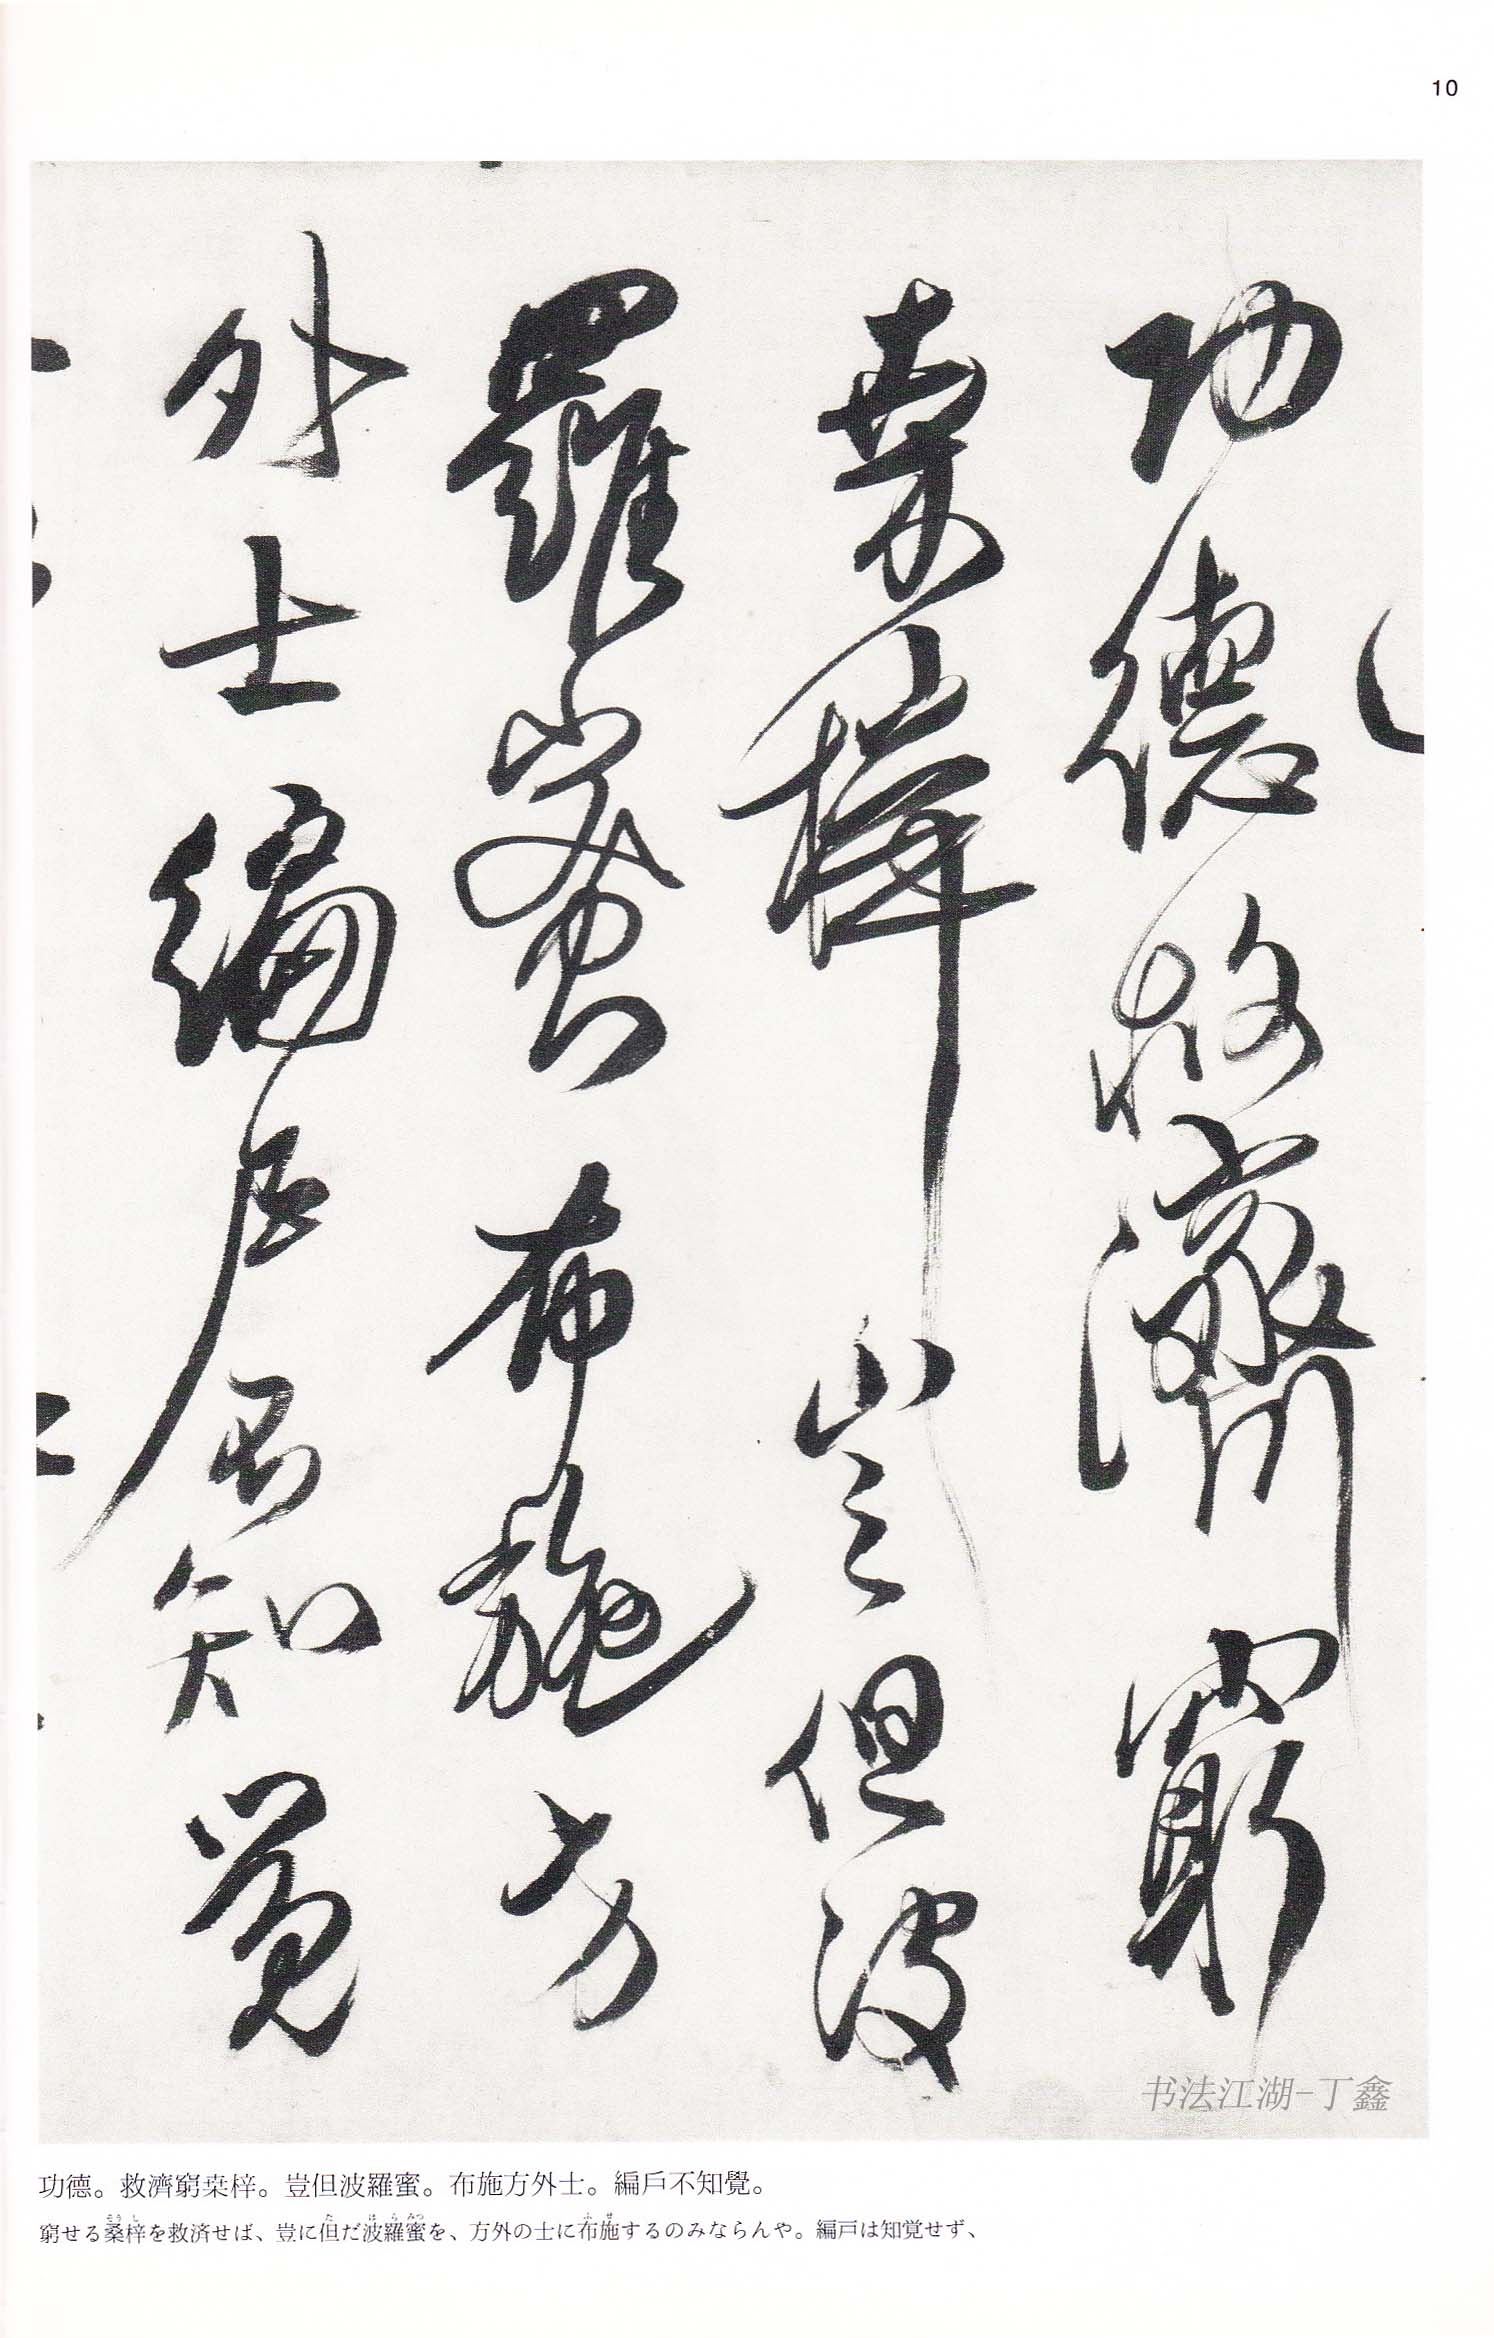 10
功德救濟窮
桒梓豈但波
羅蜜布施方
外士編戶不知覺
书法江湖-丁鑫
功德。救濟窮桒梓。豈但波羅蜜。布施方外士。編戶不知覺。
窮せる桑梓を救済せば、豈に但だ波羅蜜を、方外の士に布施するのみならんや。編戸は知覚せず、